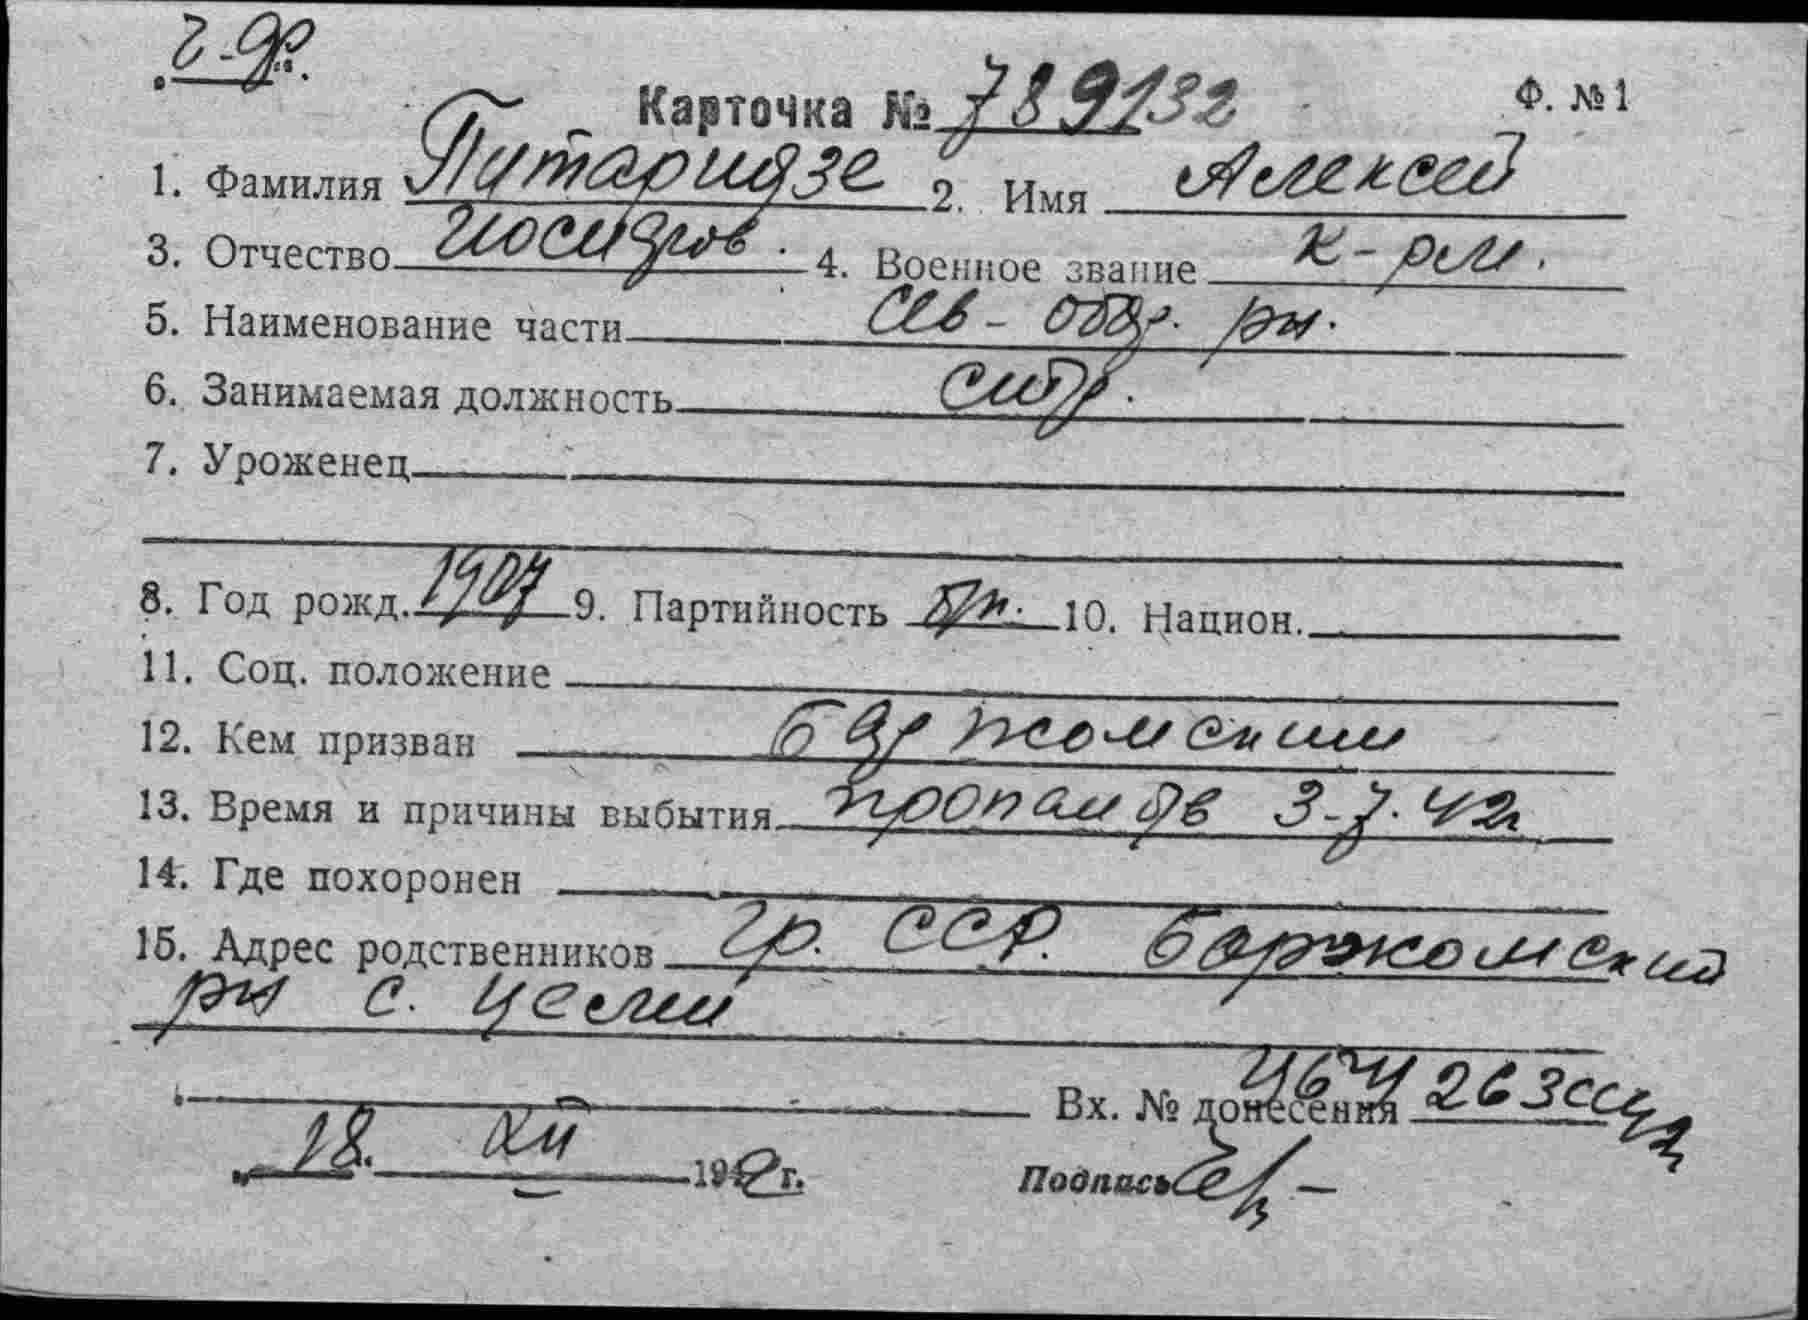 Карточка № 789132 Ф. №1
1. Фамилия Путаридзе 2. Имя Алексей
3. Отчество Иосидров. 4. Военное звание к-рм.
5. Наименование части Сев- оборр. рн.
6. Занимаемая должность стр.
7. Уроженец
8. Год рожд. 1907 9. Партийность б/п. 10. Национ.
11. Соц. положение
12. Кем призван Баржомским
13. Время и причины выбытия пропал дв 3-7. 42г
14. Где похоронен
15. Адрес родственников Гр. ССР. Боржомский
рн с. Цесми
Вх. № донесения 263
18. XII 1942 г. Подпись